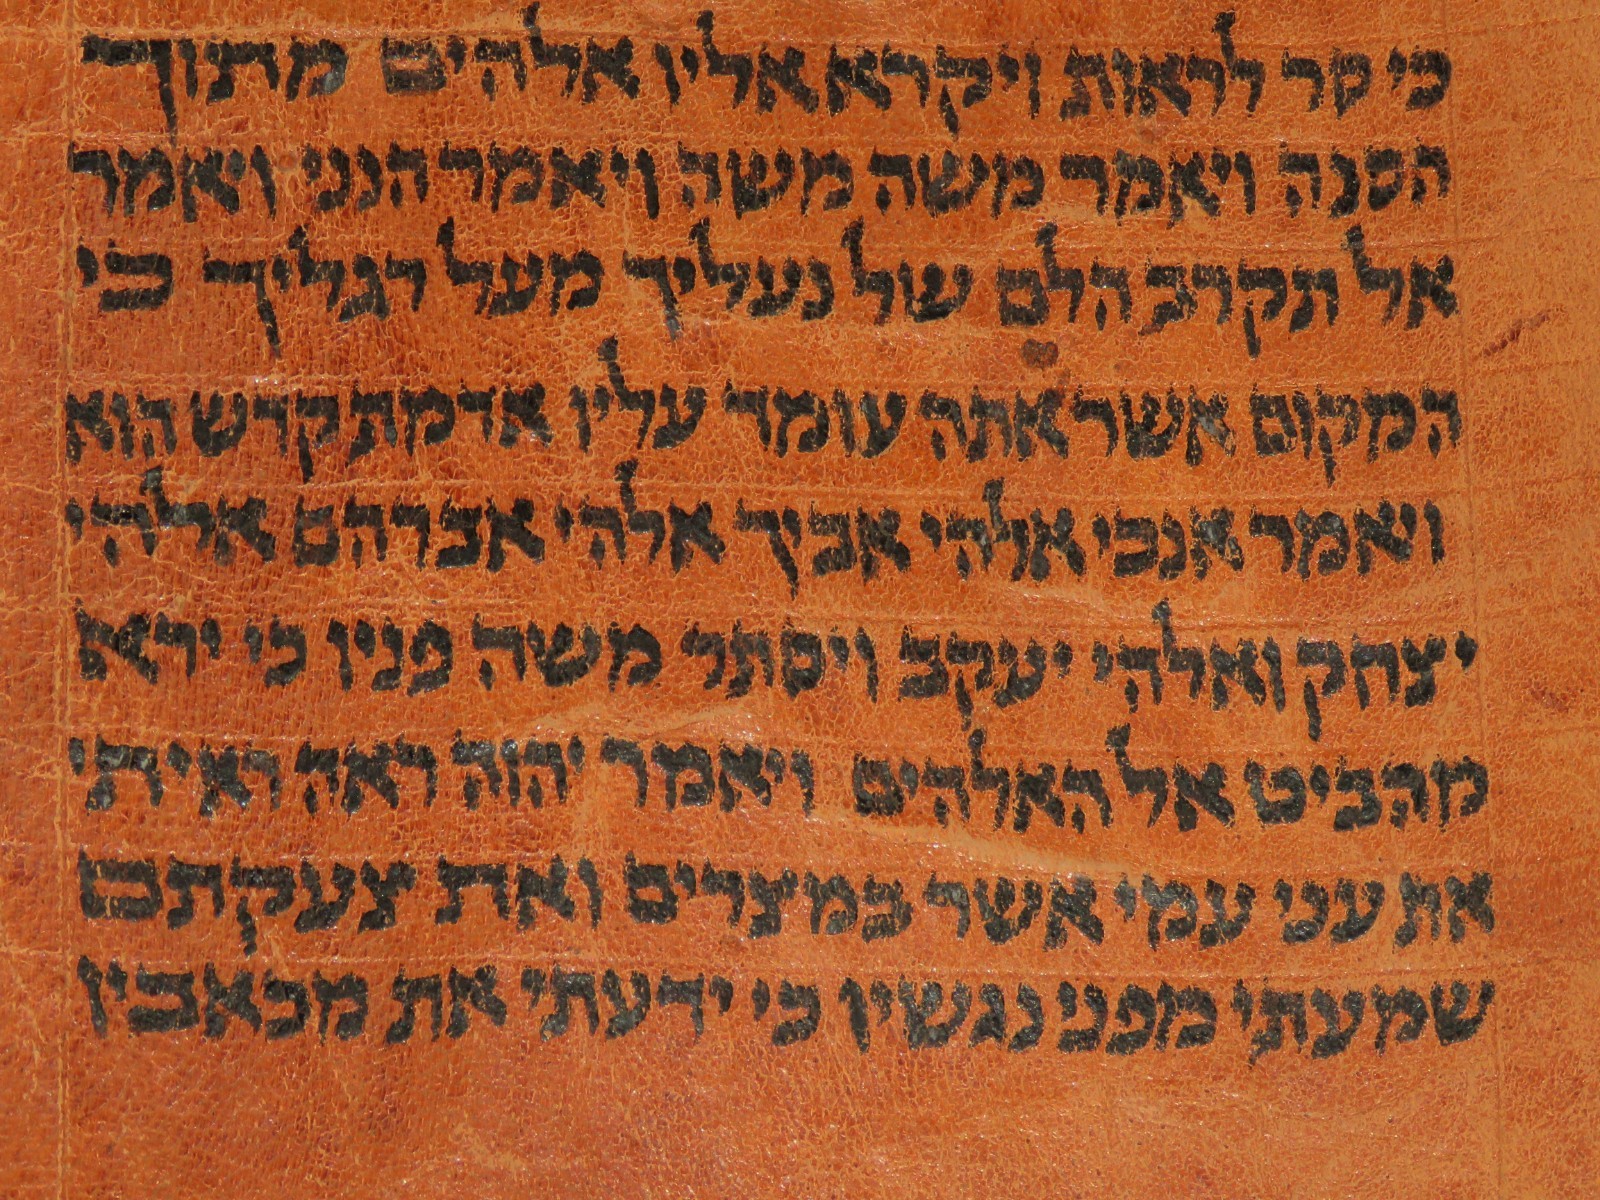 כי סר לראות ויקרא אליו אלהים מתוך
הסנה ויאמר משה משה ויאמר הנני ויאמר
אל תקרב הלם של נעליך מעל רגליך כי
המקום אשר אתה עומד עליו אדמת קדש הוא
ויאמר אנכי אלהי אביך אלהי אברהם אלהי
יצחק ואלהי יעקב ויסתר משה פניו כי ירא
מהביט אל האלהים ויאמר יהוה ראה ראיתי
את עני עמי אשר במצרים ואת צעקתם
שמעתי מפני נגשיו כי ידעתי את מכאביו